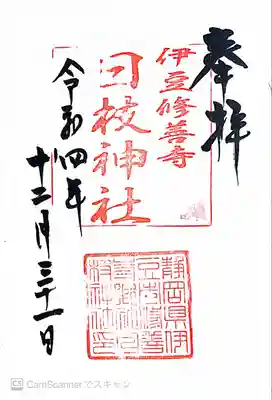 奉拝
伊豆修善寺
日枝神社
令和四年
十二月三十一日
静岡県伊
豆市修善
寺鎮守日
枝神社印
CS CamScannerでスキャン